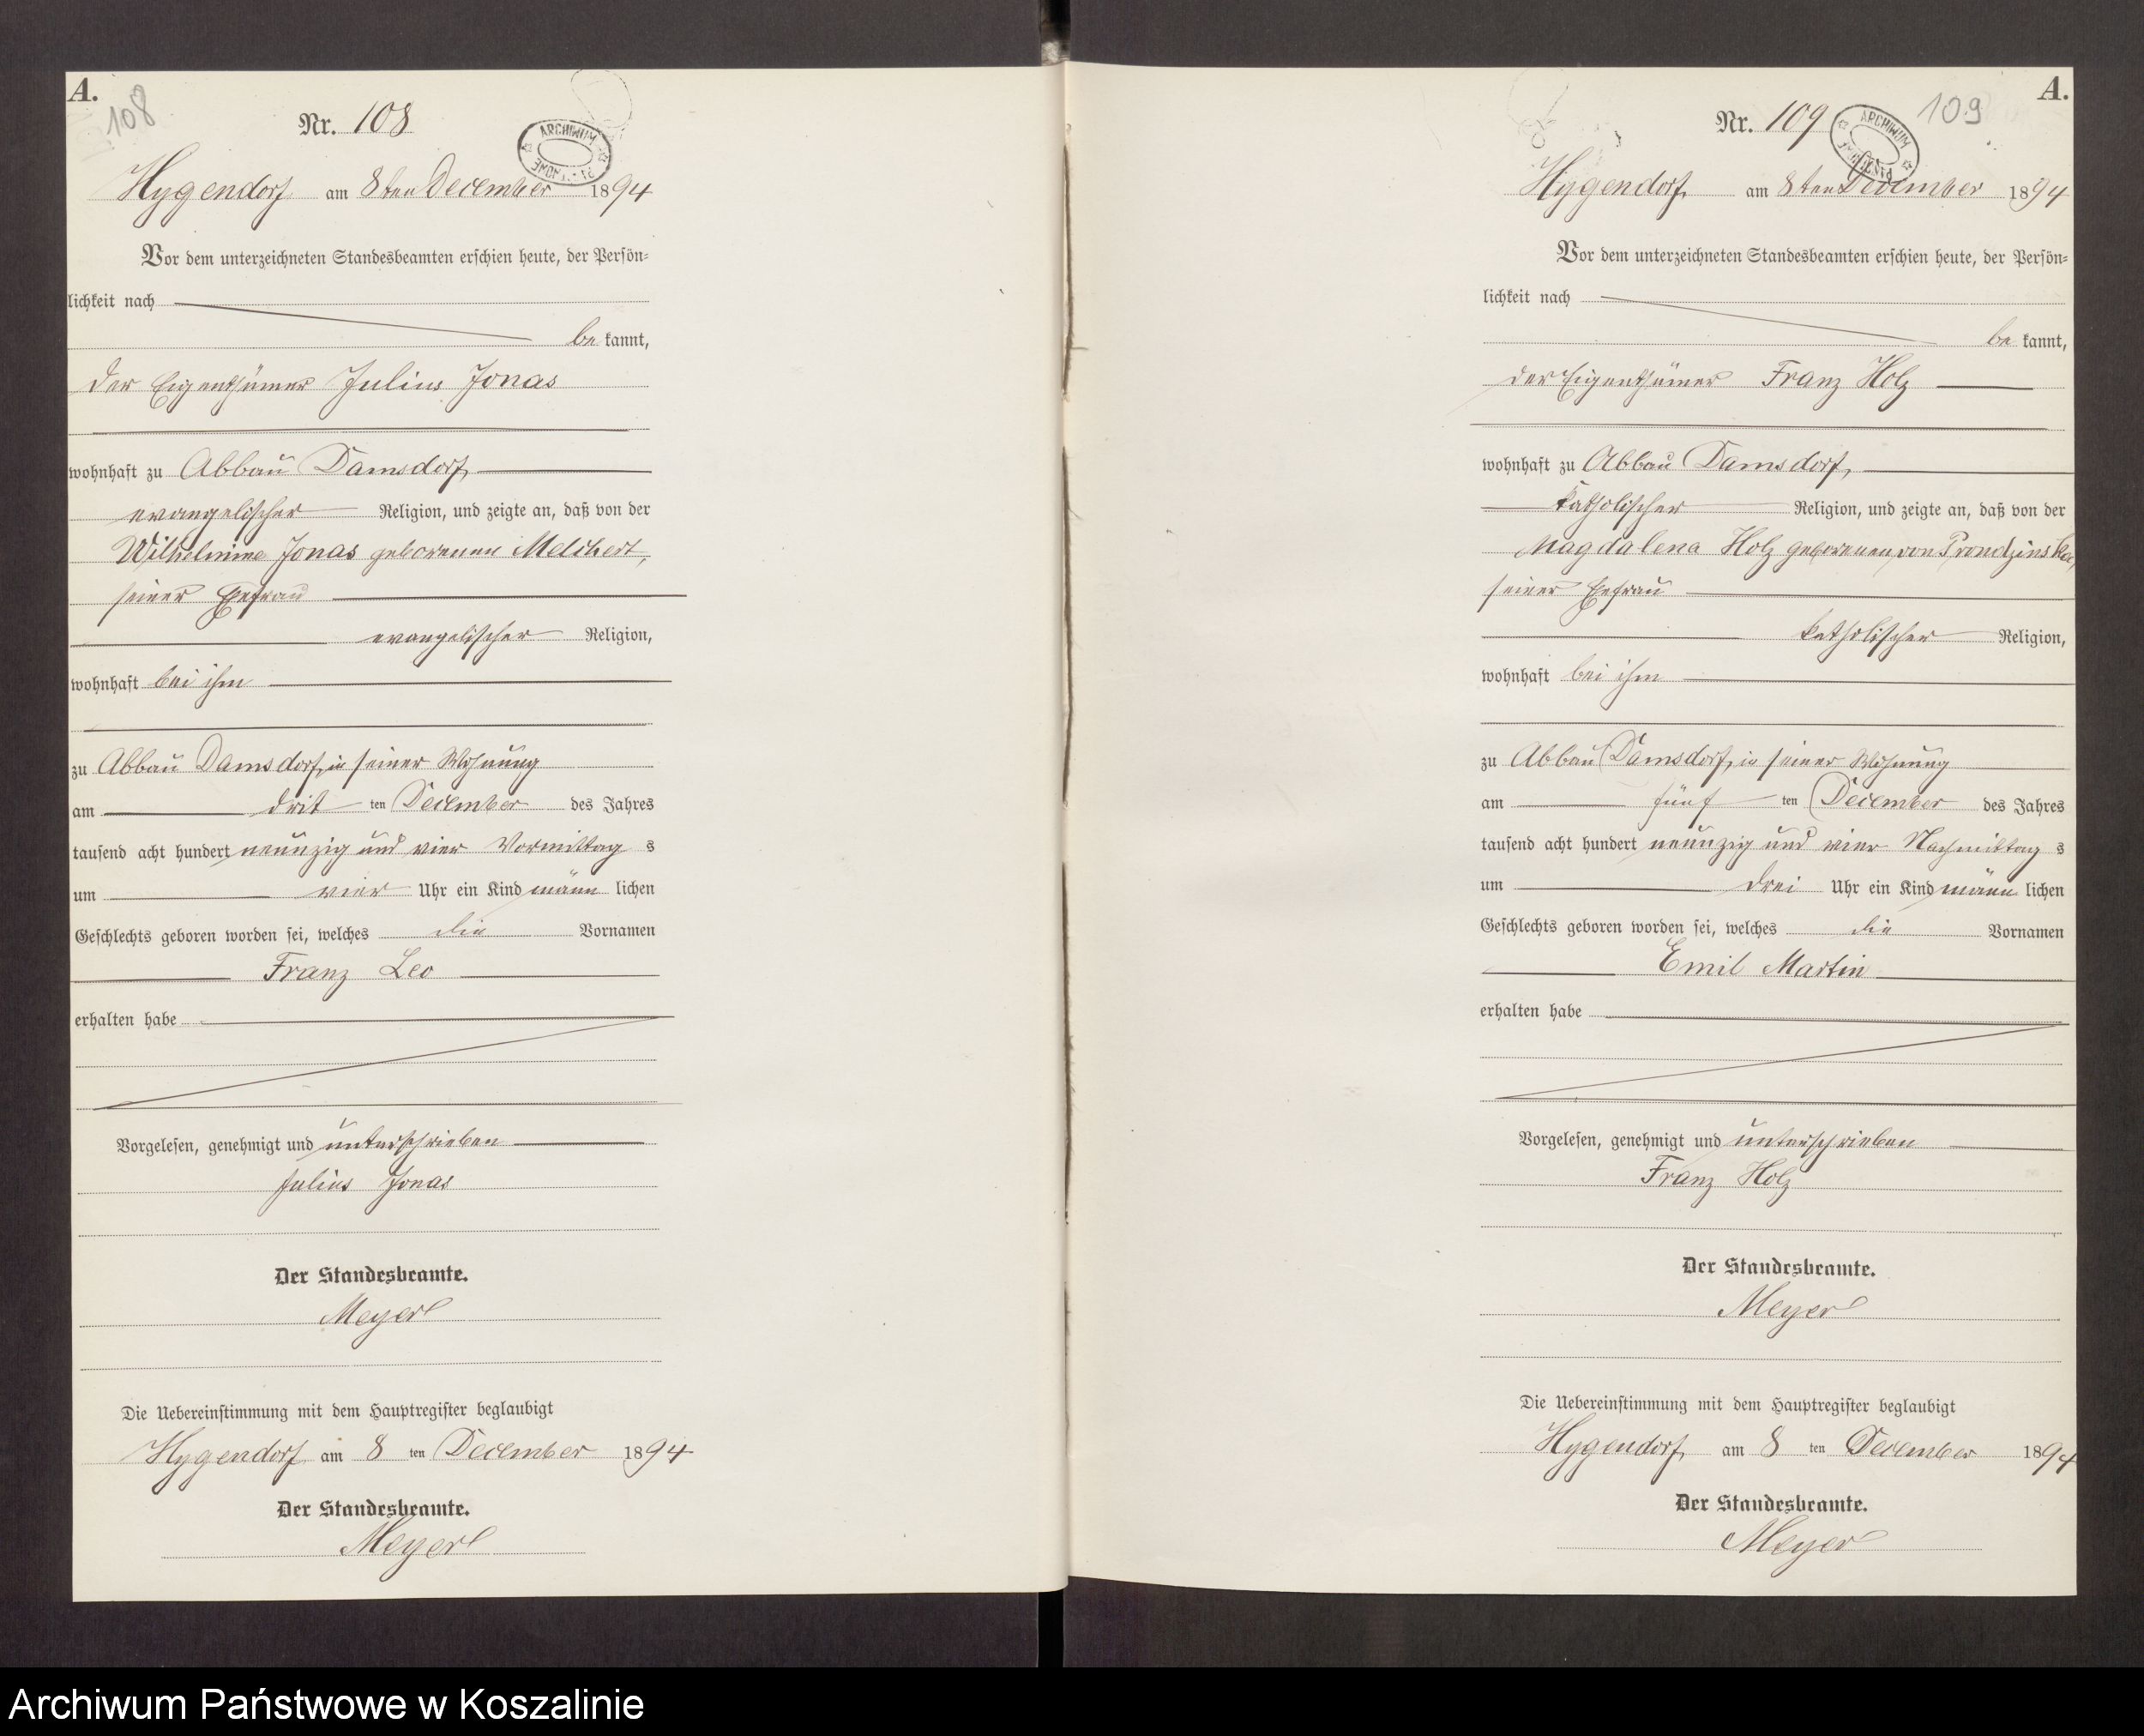 A.
108
Nr. 108
ARCHIWUM PAŃSTWOWE
Hygendorf am 8ten December 1894
Vor dem unterzeichneten Standesbeamten erschien heute, der Persön-
lichkeit nach
be kannt,
der Eigenthümer Julius Jonas
wohnhaft zu Abbau Damsdorf,
evangelischer Religion, und zeigte an, daß von der
Wilhelmine Jonas geborenen Melchert,
seiner Ehefrau
evangelischer Religion,
wohnhaft bei ihm
zu Abbau Damsdorf, in seiner Wohnung
am drit ten December des Jahres
tausend acht hundert neunzig und vier Vormittag s
um vier Uhr ein Kind männ lichen
Geschlechts geboren worden sei, welches die Vornamen
Franz Leo
erhalten habe
Vorgelesen, genehmigt und unterschrieben
Julius Jonas
Der Standesbeamte.
Meyer
Die Uebereinstimmung mit dem Hauptregister beglaubigt
Hygendorf am 8 ten December 1894
Der Standesbeamte.
Meyer
A.
109
Nr. 109
ARCHIWUM PAŃSTWOWE
Hygendorf, am 8ten December 1894
Vor dem unterzeichneten Standesbeamten erschien heute, der Persön-
lichkeit nach
be kannt,
der Eigenthümer Franz Holz
wohnhaft zu Abbau Damsdorf,
katholischer Religion, und zeigte an, daß von der
Magdalena Holz geborenen von Prondzinska,
seiner Ehefrau
katholischer Religion,
wohnhaft bei ihm
zu Abbau Damsdorf, in seiner Wohnung
am fünf ten December des Jahres
tausend acht hundert neunzig und vier Nachmittag s
um drei Uhr ein Kind männ lichen
Geschlechts geboren worden sei, welches die Vornamen
Emil Martin
erhalten habe
Vorgelesen, genehmigt und unterschrieben
Franz Holz
Der Standesbeamte.
Meyer
Die Uebereinstimmung mit dem Hauptregister beglaubigt
Hygendorf, am 8 ten December 1894
Der Standesbeamte.
Meyer
Archiwum Państwowe w Koszalinie